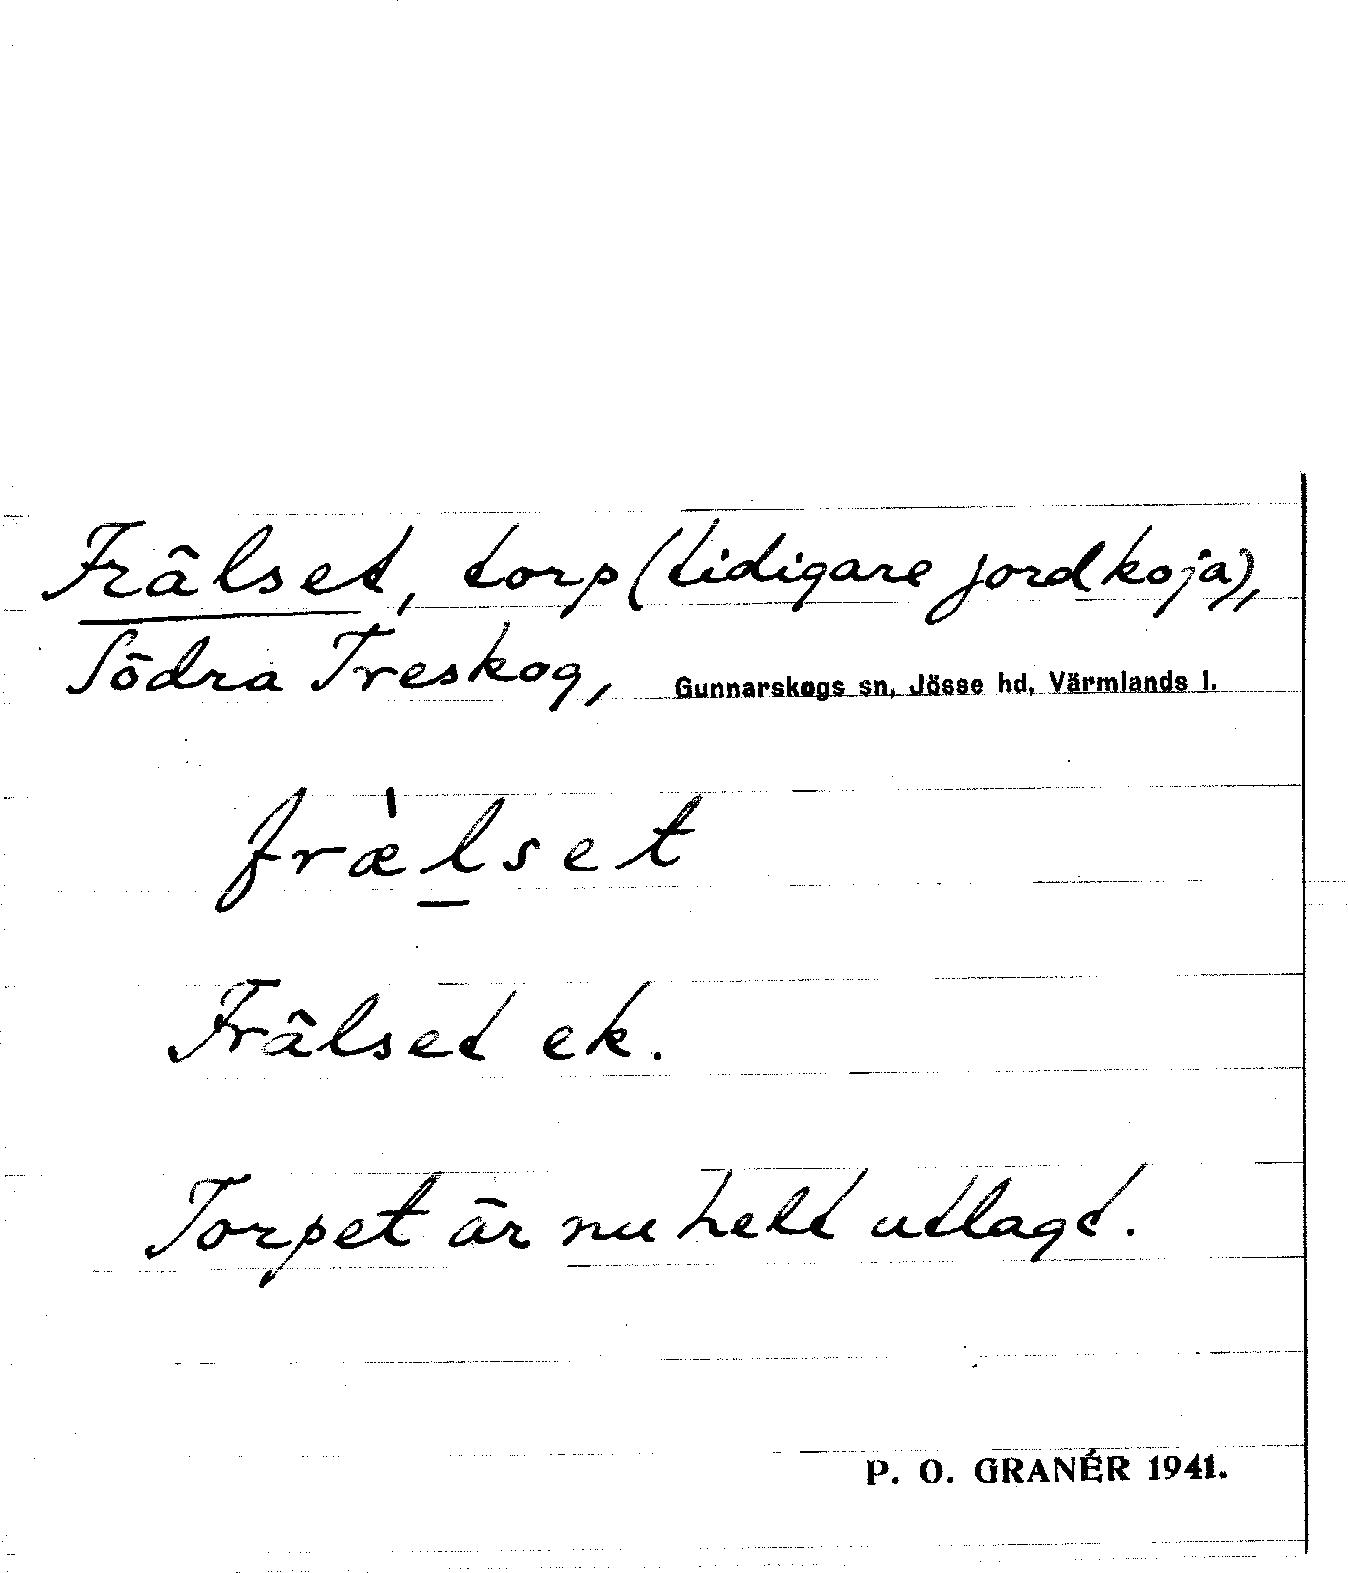 Frälset, torp (tidigare jordkoja),
Södra Treskog, Gunnarskogs sn, Jösse hd, Värmlands l.
fræ̀l̲set
Frälset ek.
Torpet är nu helt utlagt.
P. O. GRANÉR 1941.